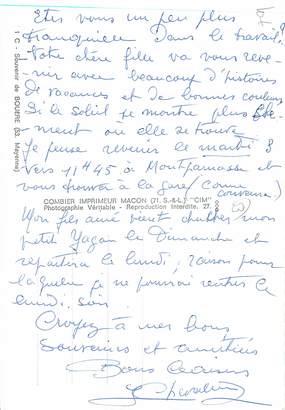 Etes vous un peu plus
tranquille dans le travail?
Votre chère fille va vous reve-
nir avec beaucoup d'histoires
de vacances et de bonnes couleurs
Si le soleil se montre plus
ment où elle se trouve
Je pense revenir le mardi 8
vers 11H45 à Montparnasse et
vous trouver à la gare (comme
convenu)
Mon fils aîné vient chercher mon
petit Yagan le Dimanche et
repartira le lundi, raison pour
laquelle je ne pourrai rentrer le
lundi, soir.
Croyez à mes bons
souvenirs et amitiés
Bons baisers
1 C - Souvenir de BOUERE (53. Mayenne)
COMBIER IMPRIMEUR MACON (71. S.-&-L.) "CIM"
Photographie Véritable - Reproduction Interdite.